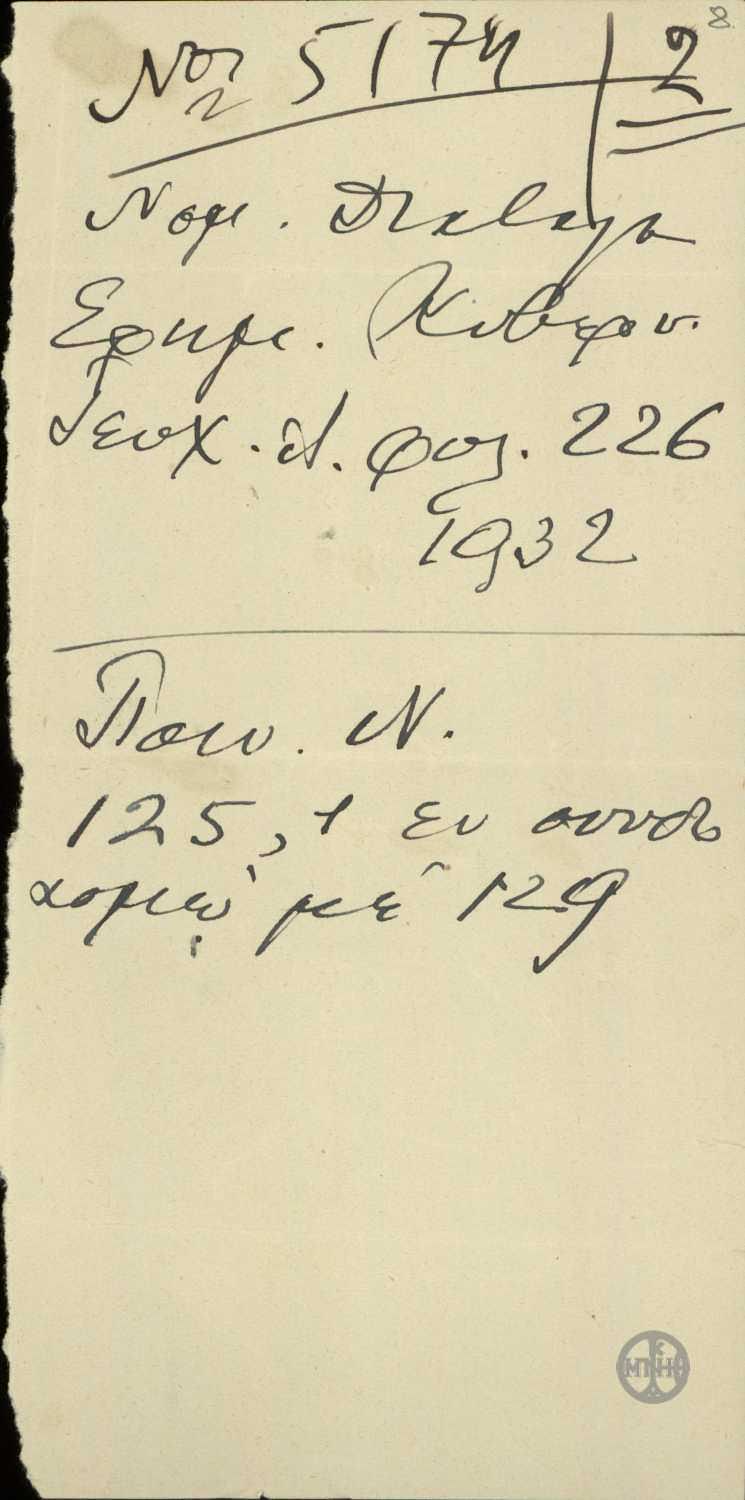 8
Νομ 5174 | 2
Νομ. Διαταγμ
Εφημ. Κυβερν.
Τευχ. Α. φυλ. 226
1932
Ποιν. Ν.
125, 1 εν συνδυ
ασμῷ μέ 129